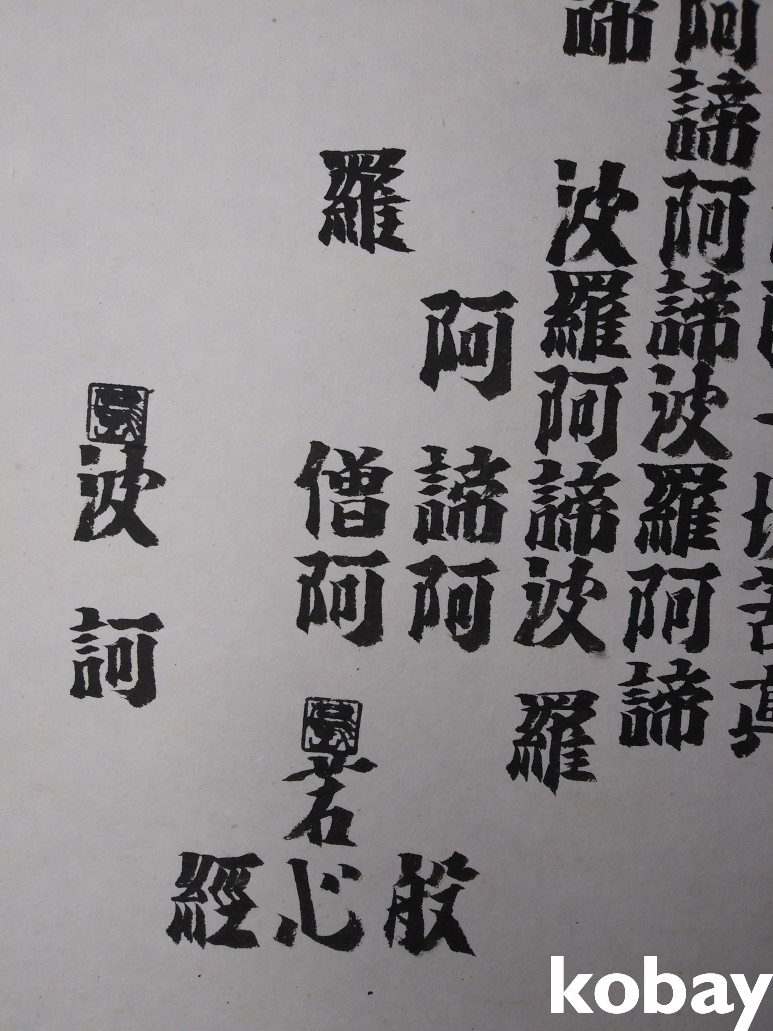 一切苦真
阿諦阿諦波羅阿諦
諦波羅阿諦波羅
阿諦阿
羅僧阿
波訶
般若心經
kobay